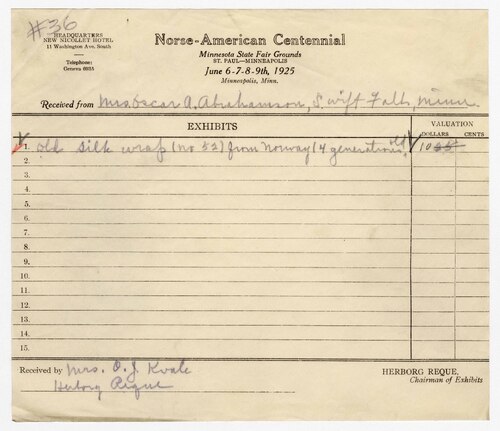 #36
HEADQUARTERS
NEW NICOLLET HOTEL
11 Washington Ave. South
Telephone:
Geneva 6955
Norse-American Centennial
Minnesota State Fair Grounds
ST. PAUL—MINNEAPOLIS
June 6-7-8-9th, 1925
Minneapolis, Minn.
Received from Mrs. Oscar A. Abrahamson, Swift Falls, Minn
EXHIBITS
VALUATION
DOLLARS CENTS
1. Old silk wrap (no 52) from Norway (4 generations old) 10
2.
3.
4.
5.
6.
7.
8.
9.
10.
11.
12.
13.
14.
15.
Received by Mrs. O. J. Kvale
Herborg Reque
HERBORG REQUE,
Chairman of Exhibits